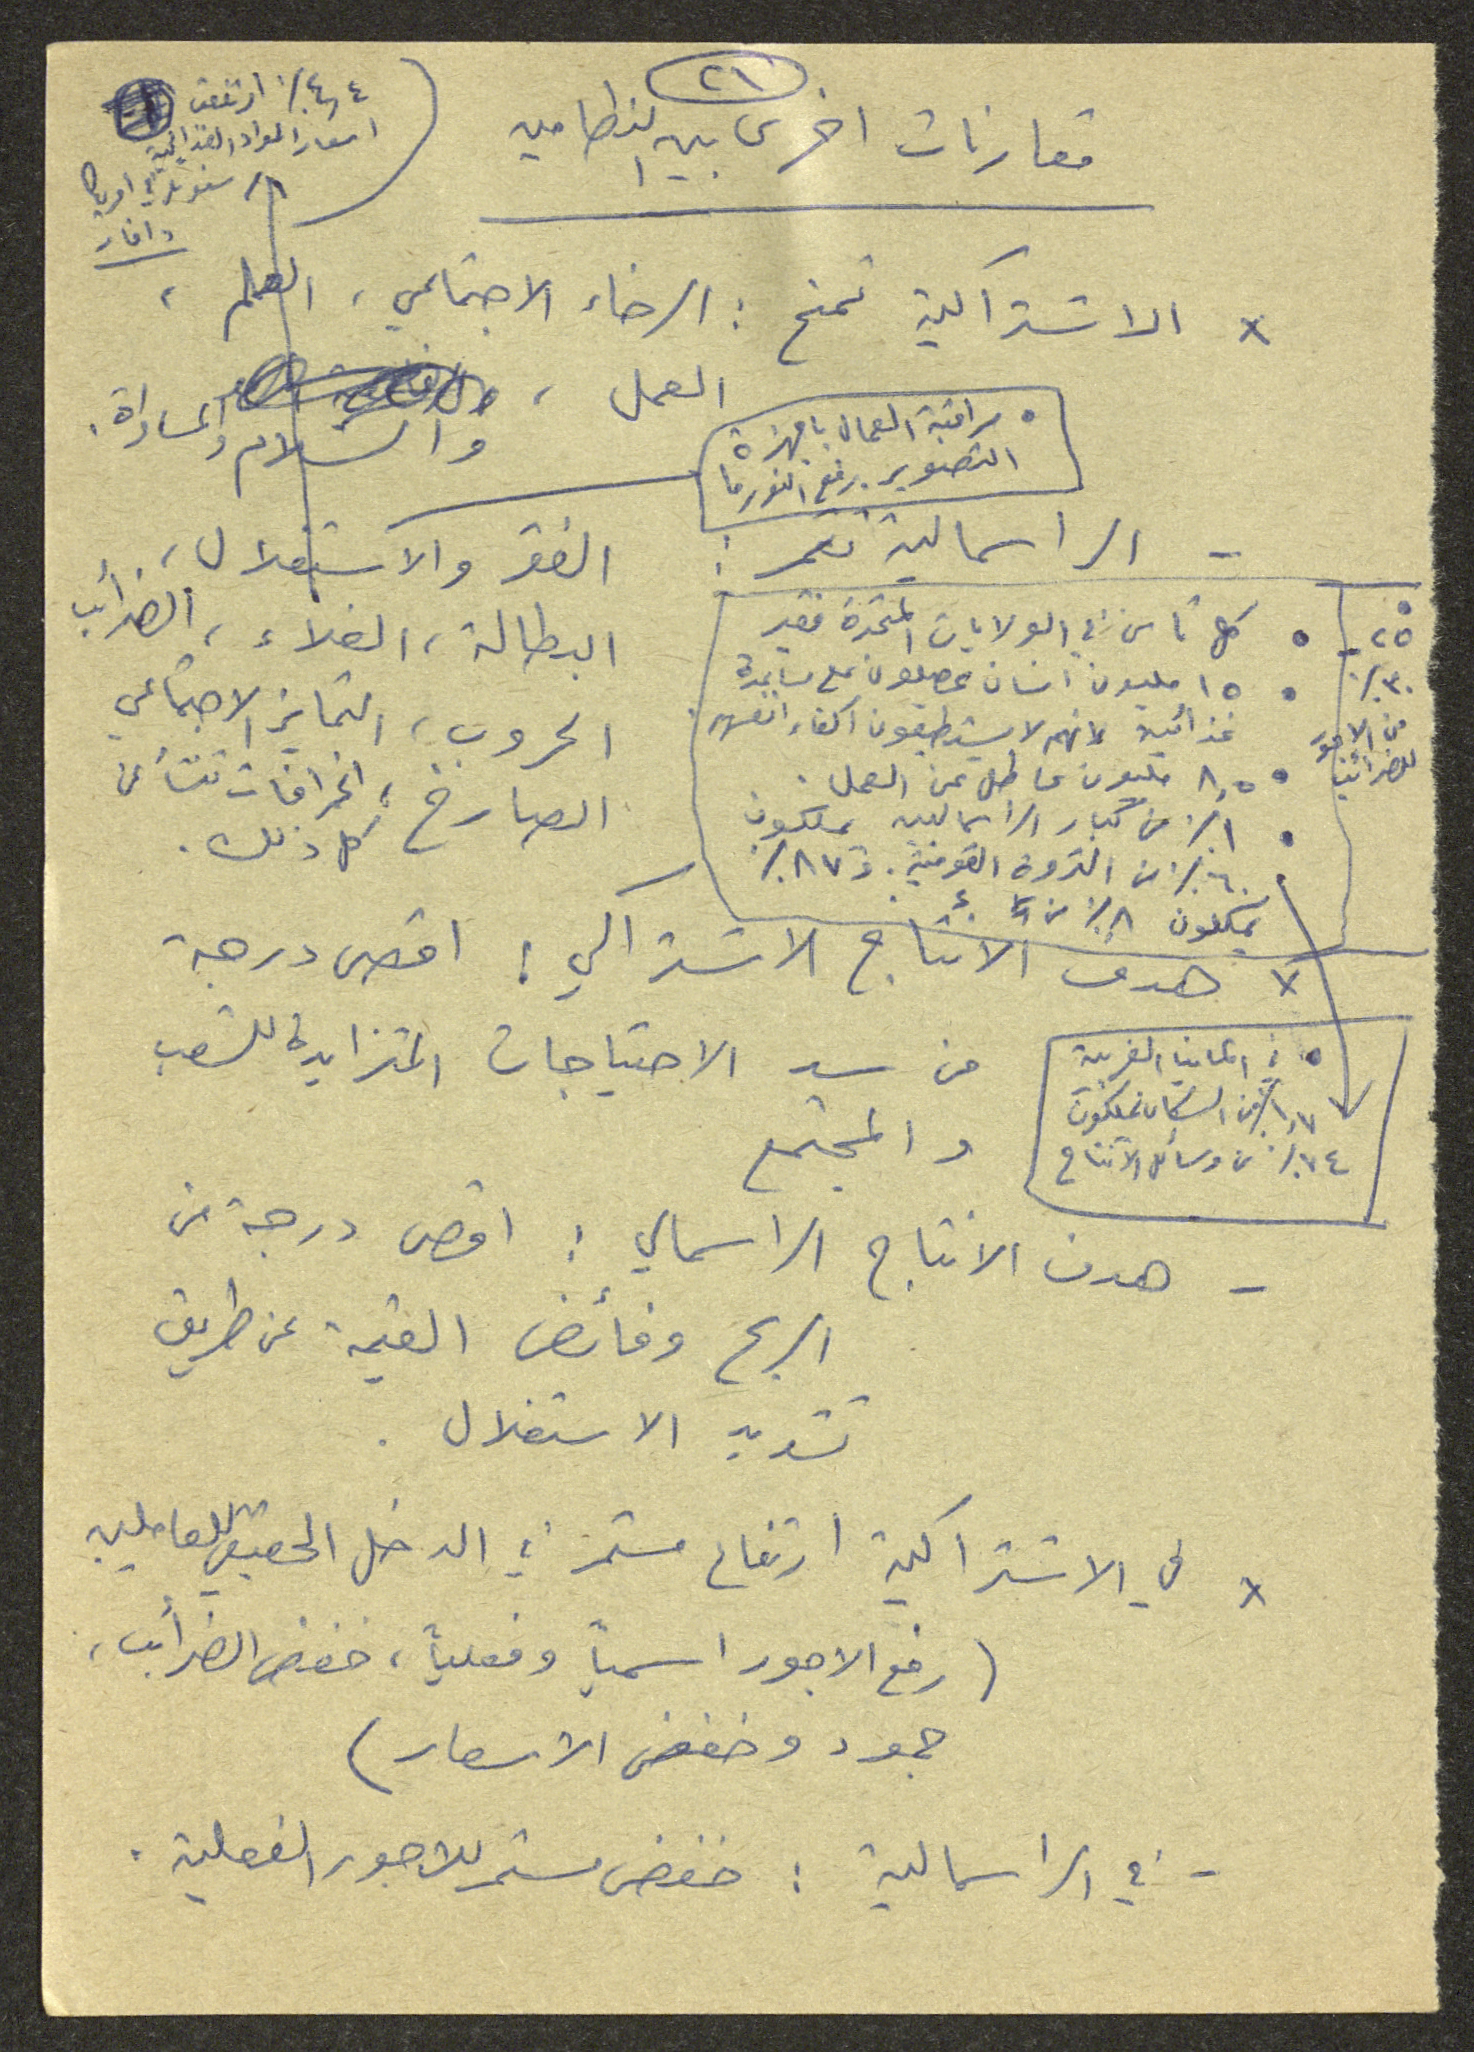 ٢١
مقارنات اخرى بين النظامين
٤,٤٪ ارتفعت
اسعار المواد الغذائية
سنويا في امريكا
x الاشتراكية تمنح : الرخاء الاجتماعي ، العلم ،
العمل ،
والسلام والمساواة .
• مراقبة العمال باجهزة
التصوير . رفع النورما
- الراسمالية تثمر : الفقر والاستغلال ،
البطالة ، الغلاء ، الضرائب
الحروب ، التمايز الاجتماعي
الصارخ ، انحرافات تنشأ عن
كل ذلك .
• ٢٥ -
٣٠٪
من الاجور
للضرائب
• كل ثامن في الولايات المتحدة فقير
• ١٥ مليون انسان يحصلون على مساعدة
غذائية لانهم لا يستطيعون اكفاء انفسهم
• ٨,٥ مليون عاطل عن العمل .
• ١٪ من كبار الراسماليين يملكون
٦٠٪ من الثروة القومية . و ٨٧٪
يملكون ٨٪ من
x هدف الانتاج الاشتراكي : اقصى درجة
من سد الاحتياجات المتزايدة للشعب
والمجتمع
• في المانيا الغربية
١,٧٪ من السكان يملكون
٧٤٪ من وسائل الانتاج
- هدف الانتاج الراسمالي : اقصى درجة من
الربح وفائض القيمة عن طريق
تشديد الاستغلال .
x في الاشتراكية ارتفاع مستمر في الدخل الحقيقي للعاملين
( رفع الاجور اسمياً وفعلياً ، خفض الضرائب ،
جمود وخفض الاسعار )
- في الراسمالية : خفض مستمر للاجور الفعلية .